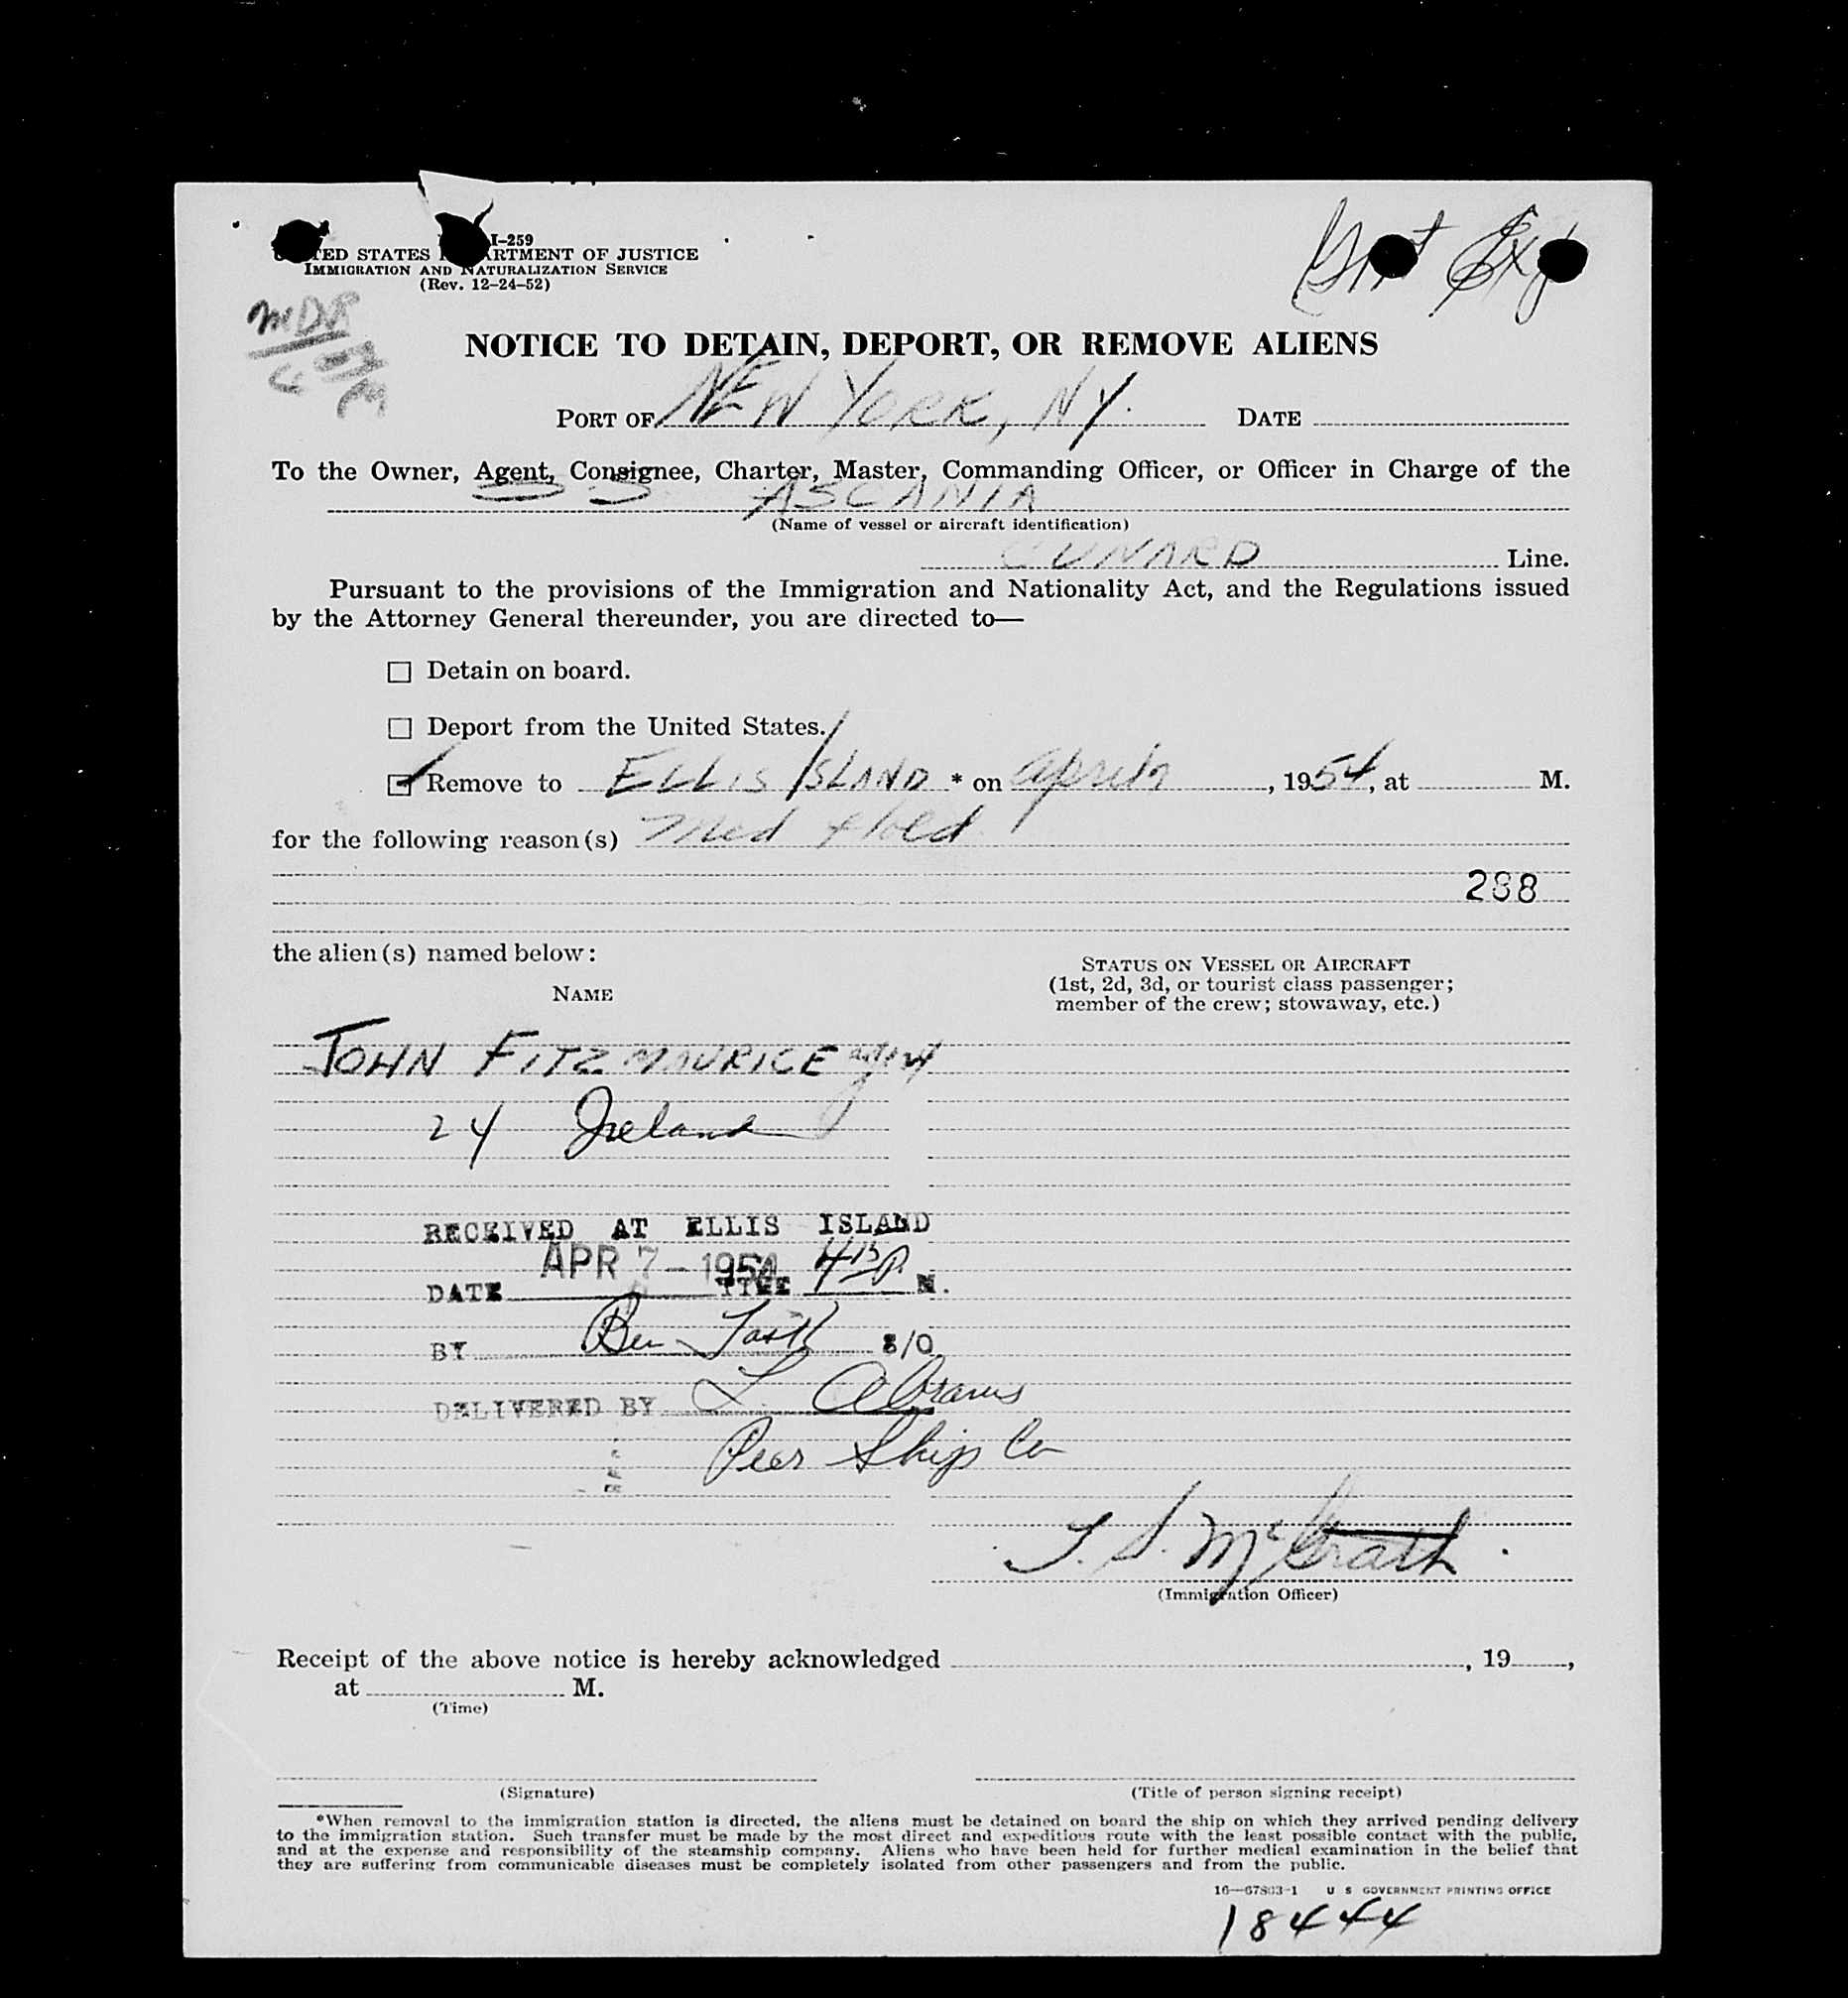 I-259
TED STATES ARTMENT OF JUSTICE
IMMIGRATION AND NATURALIZATION SERVICE
(Rev. 12-24-52)
NOTICE TO DETAIN, DEPORT, OR REMOVE ALIENS
PORT OF NEW YORK, NY. DATE
To the Owner, Agent, Consignee, Charter, Master, Commanding Officer, or Officer in Charge of the
SS ASCANIA
(Name of vessel or aircraft identification)
CUNARD Line.
Pursuant to the provisions of the Immigration and Nationality Act, and the Regulations issued
by the Attorney General thereunder, you are directed to—
Detain on board.
Deport from the United States.
Remove to ELLIS ISLAND * on April 7, 1954, at M.
for the following reason(s) Med Hold
288
the alien(s) named below:
NAME
STATUS ON VESSEL OR AIRCRAFT
(1st, 2d, 3d, or tourist class passenger;
member of the crew; stowaway, etc.)
JOHN FITZMAURICE
24 Ireland
RECEIVED AT ELLIS ISLAND
DATE APR 7 - 1954 TIME 4 15 P. M.
BY Ben S/O
DELIVERED BY L. Abrams
Peer Ship Co
T. S. McGrath
(Immigration Officer)
Receipt of the above notice is hereby acknowledged , 19 ,
at M.
(Time)
(Signature)
(Title of person signing receipt)
*When removal to the immigration station is directed, the aliens must be detained on board the ship on which they arrived pending delivery
to the immigration station. Such transfer must be made by the most direct and expeditious route with the least possible contact with the public,
and at the expense and responsibility of the steamship company. Aliens who have been held for further medical examination in the belief that
they are suffering from communicable diseases must be completely isolated from other passengers and from the public.
16—67803-1 U S GOVERNMENT PRINTING OFFICE
18444